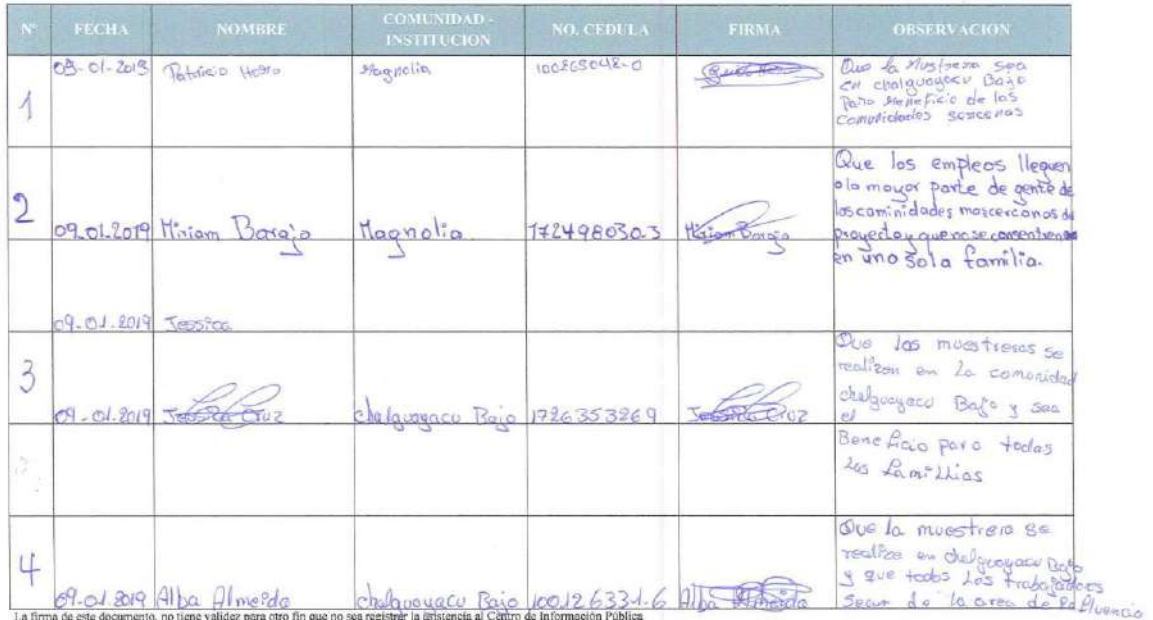 N° FECHA NOMBRE COMUNIDAD - INSTITUCION NO. CEDULA FIRMA OBSERVACION
1 09-01-2019 Patricio Magnolia
Que la
en chalguayacu Bajo
Para Beneficio de las
Comunidades
2 09.01.2019 Miriam Magnolia 172498030-3 Miriam
Que los empleos lleguen
a la mayor parte de gente de
las cominidades mas cercanas de
proyecto y que no se
en una sola familia.
09-01-2019 Jessica
3 09-01-2019 Jessica Cruz chalguayacu Bajo 1726353269 Jessica Cruz
Que las muestreras se
realizen en la comunidad
chalguayacu Bajo y sea
el
Beneficio para todas
las familias
4 09-01-2019 Alba Almeida chalguayacu Bajo 100126331-6 Alba Almeida
Que la muestrera se
realize en chalguayacu Bajo
y que todos los trabajadores
sean de la area de
La firma de este documento, no tiene validez para otro fin que no sea registrar la asistencia al Centro de Información Pública